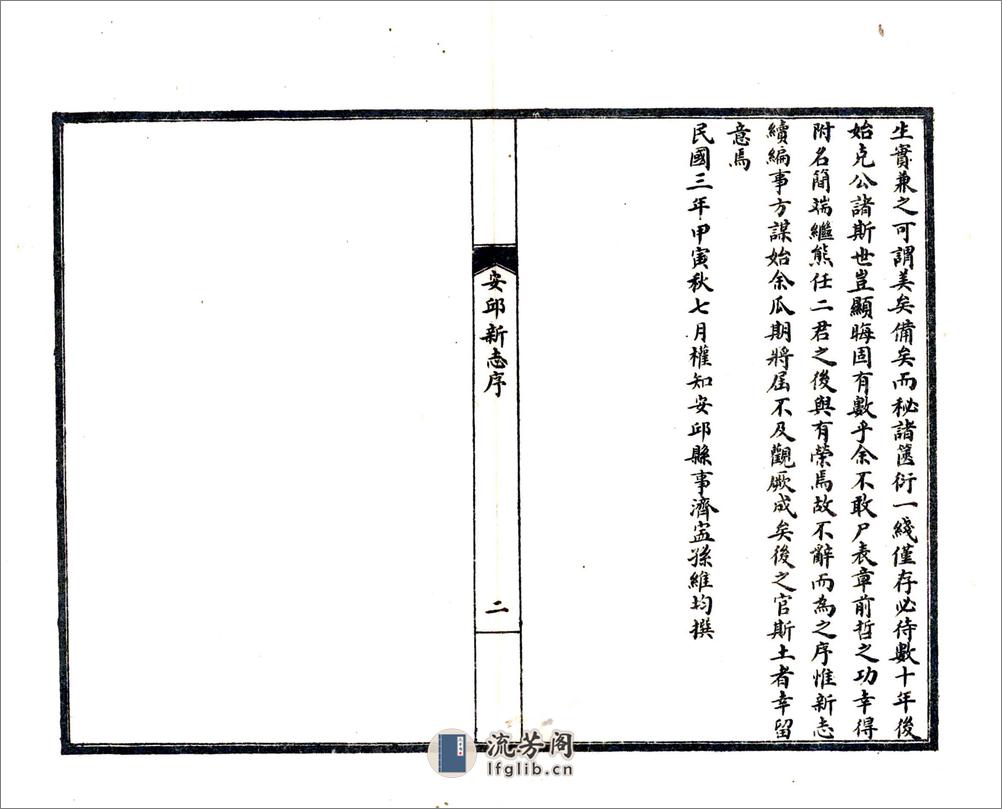 生實兼之可謂美矣備矣而秘諸篋衍一綫僅存必待數十年後
始克公諸斯世豈顯晦固有數乎余不敢尸表章前哲之功幸得
附名簡端繼熊任二君之後與有榮焉故不辭而為之序惟新志
續編事方謀始余瓜期將屆不及觀厥成矣後之官斯土者幸留
意焉
民國三年甲寅秋七月權知安邱縣事濟寍孫維均撰
安邱新志序
二
流芳阁
lfglib.cn